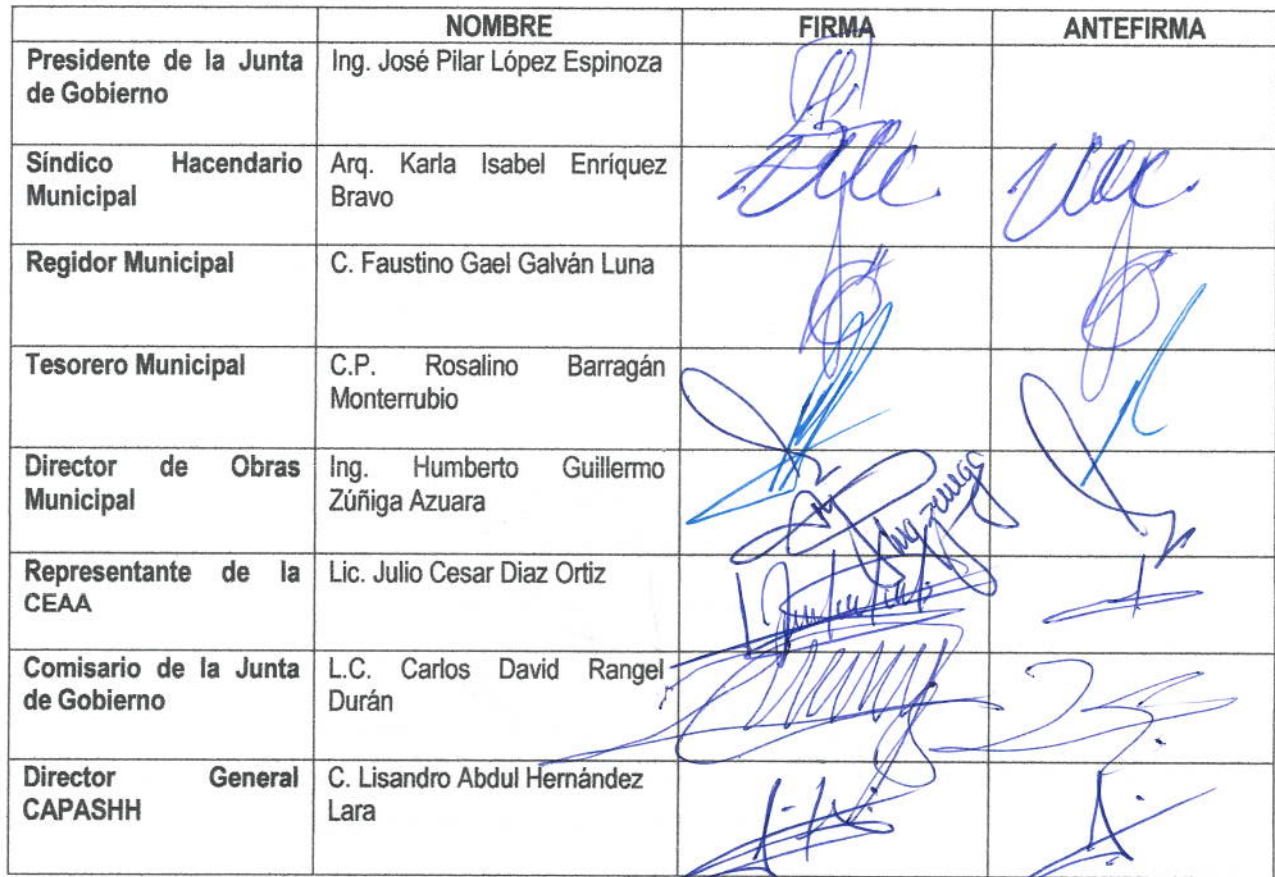 NOMBRE FIRMA ANTEFIRMA
Presidente de la Junta de Gobierno Ing. José Pilar López Espinoza
Síndico Hacendario Municipal Arq. Karla Isabel Enríquez Bravo
Regidor Municipal C. Faustino Gael Galván Luna
Tesorero Municipal C.P. Rosalino Barragán Monterrubio
Director de Obras Municipal Ing. Humberto Guillermo Zúñiga Azuara
Representante de la CEAA Lic. Julio Cesar Diaz Ortiz
Comisario de la Junta de Gobierno L.C. Carlos David Rangel Durán
Director General CAPASHH C. Lisandro Abdul Hernández Lara